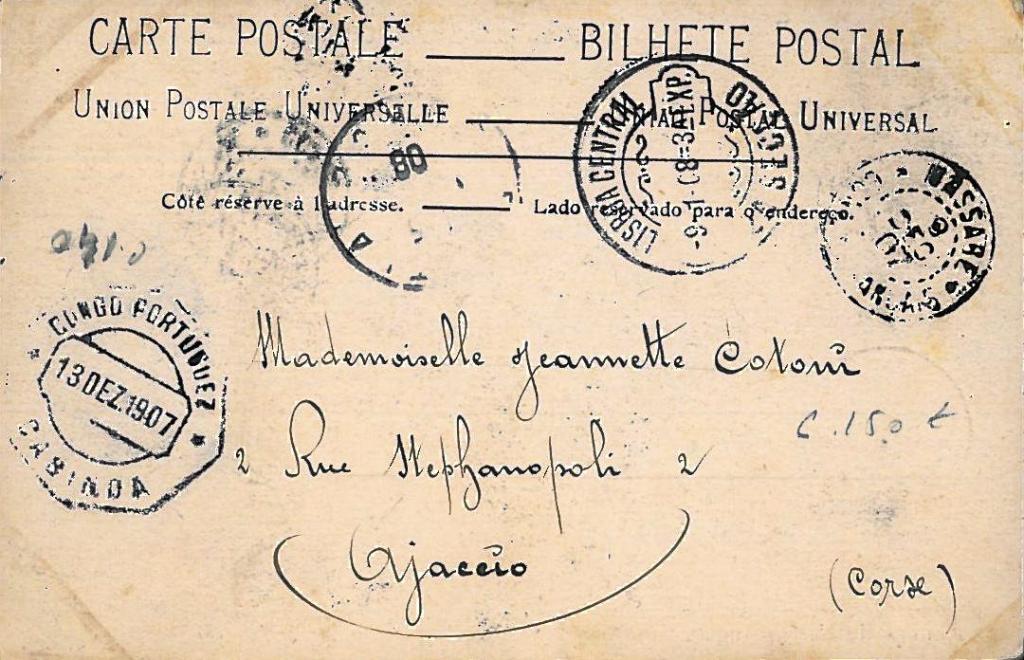 CARTE POSTALE BILHETE POSTAL
UNION POSTALE UNIVERSELLE UNIÃO POSTAL UNIVERSAL
Côté réservé à l'adresse. Lado reservado para o endereço.
LISBOA CENTRAL
6-1-08-3
EXP.
80
CONGO PORTUGUEZ
13 DEZ. 1907
CABINDA
Mademoiselle Jeannette Cotoni
2 Rue Stephanopoli 2
Ajaccio
(Corse)